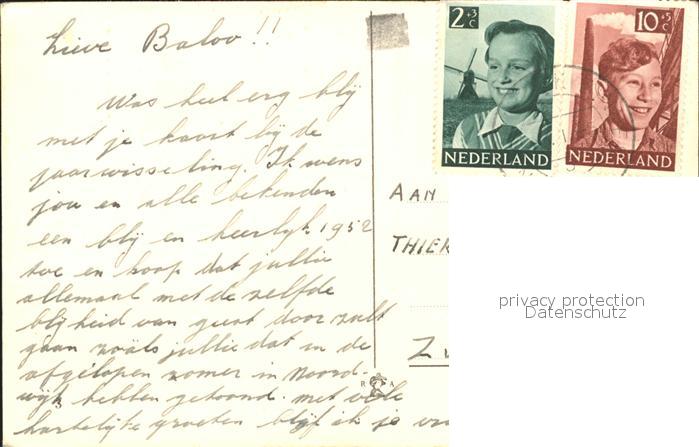 Lieve Baloo!!
Was heel erg blij
met je kaart bij de
jaarwisseling. Ik wens
jou en alle bekenden
een blij en heerlijk 1952
toe en hoop dat jullie
allemaal met de zelfde
blijheid van geest door zult
gaan zoals jullie dat in de
afgelopen zomer in Noord-
wijk hebben getoond. Met vele
hartelijke groeten blijf ik je
2+3 C
NEDERLAND
10+5 C
NEDERLAND
AAN
THIER
R A
privacy protection
Datenschutz